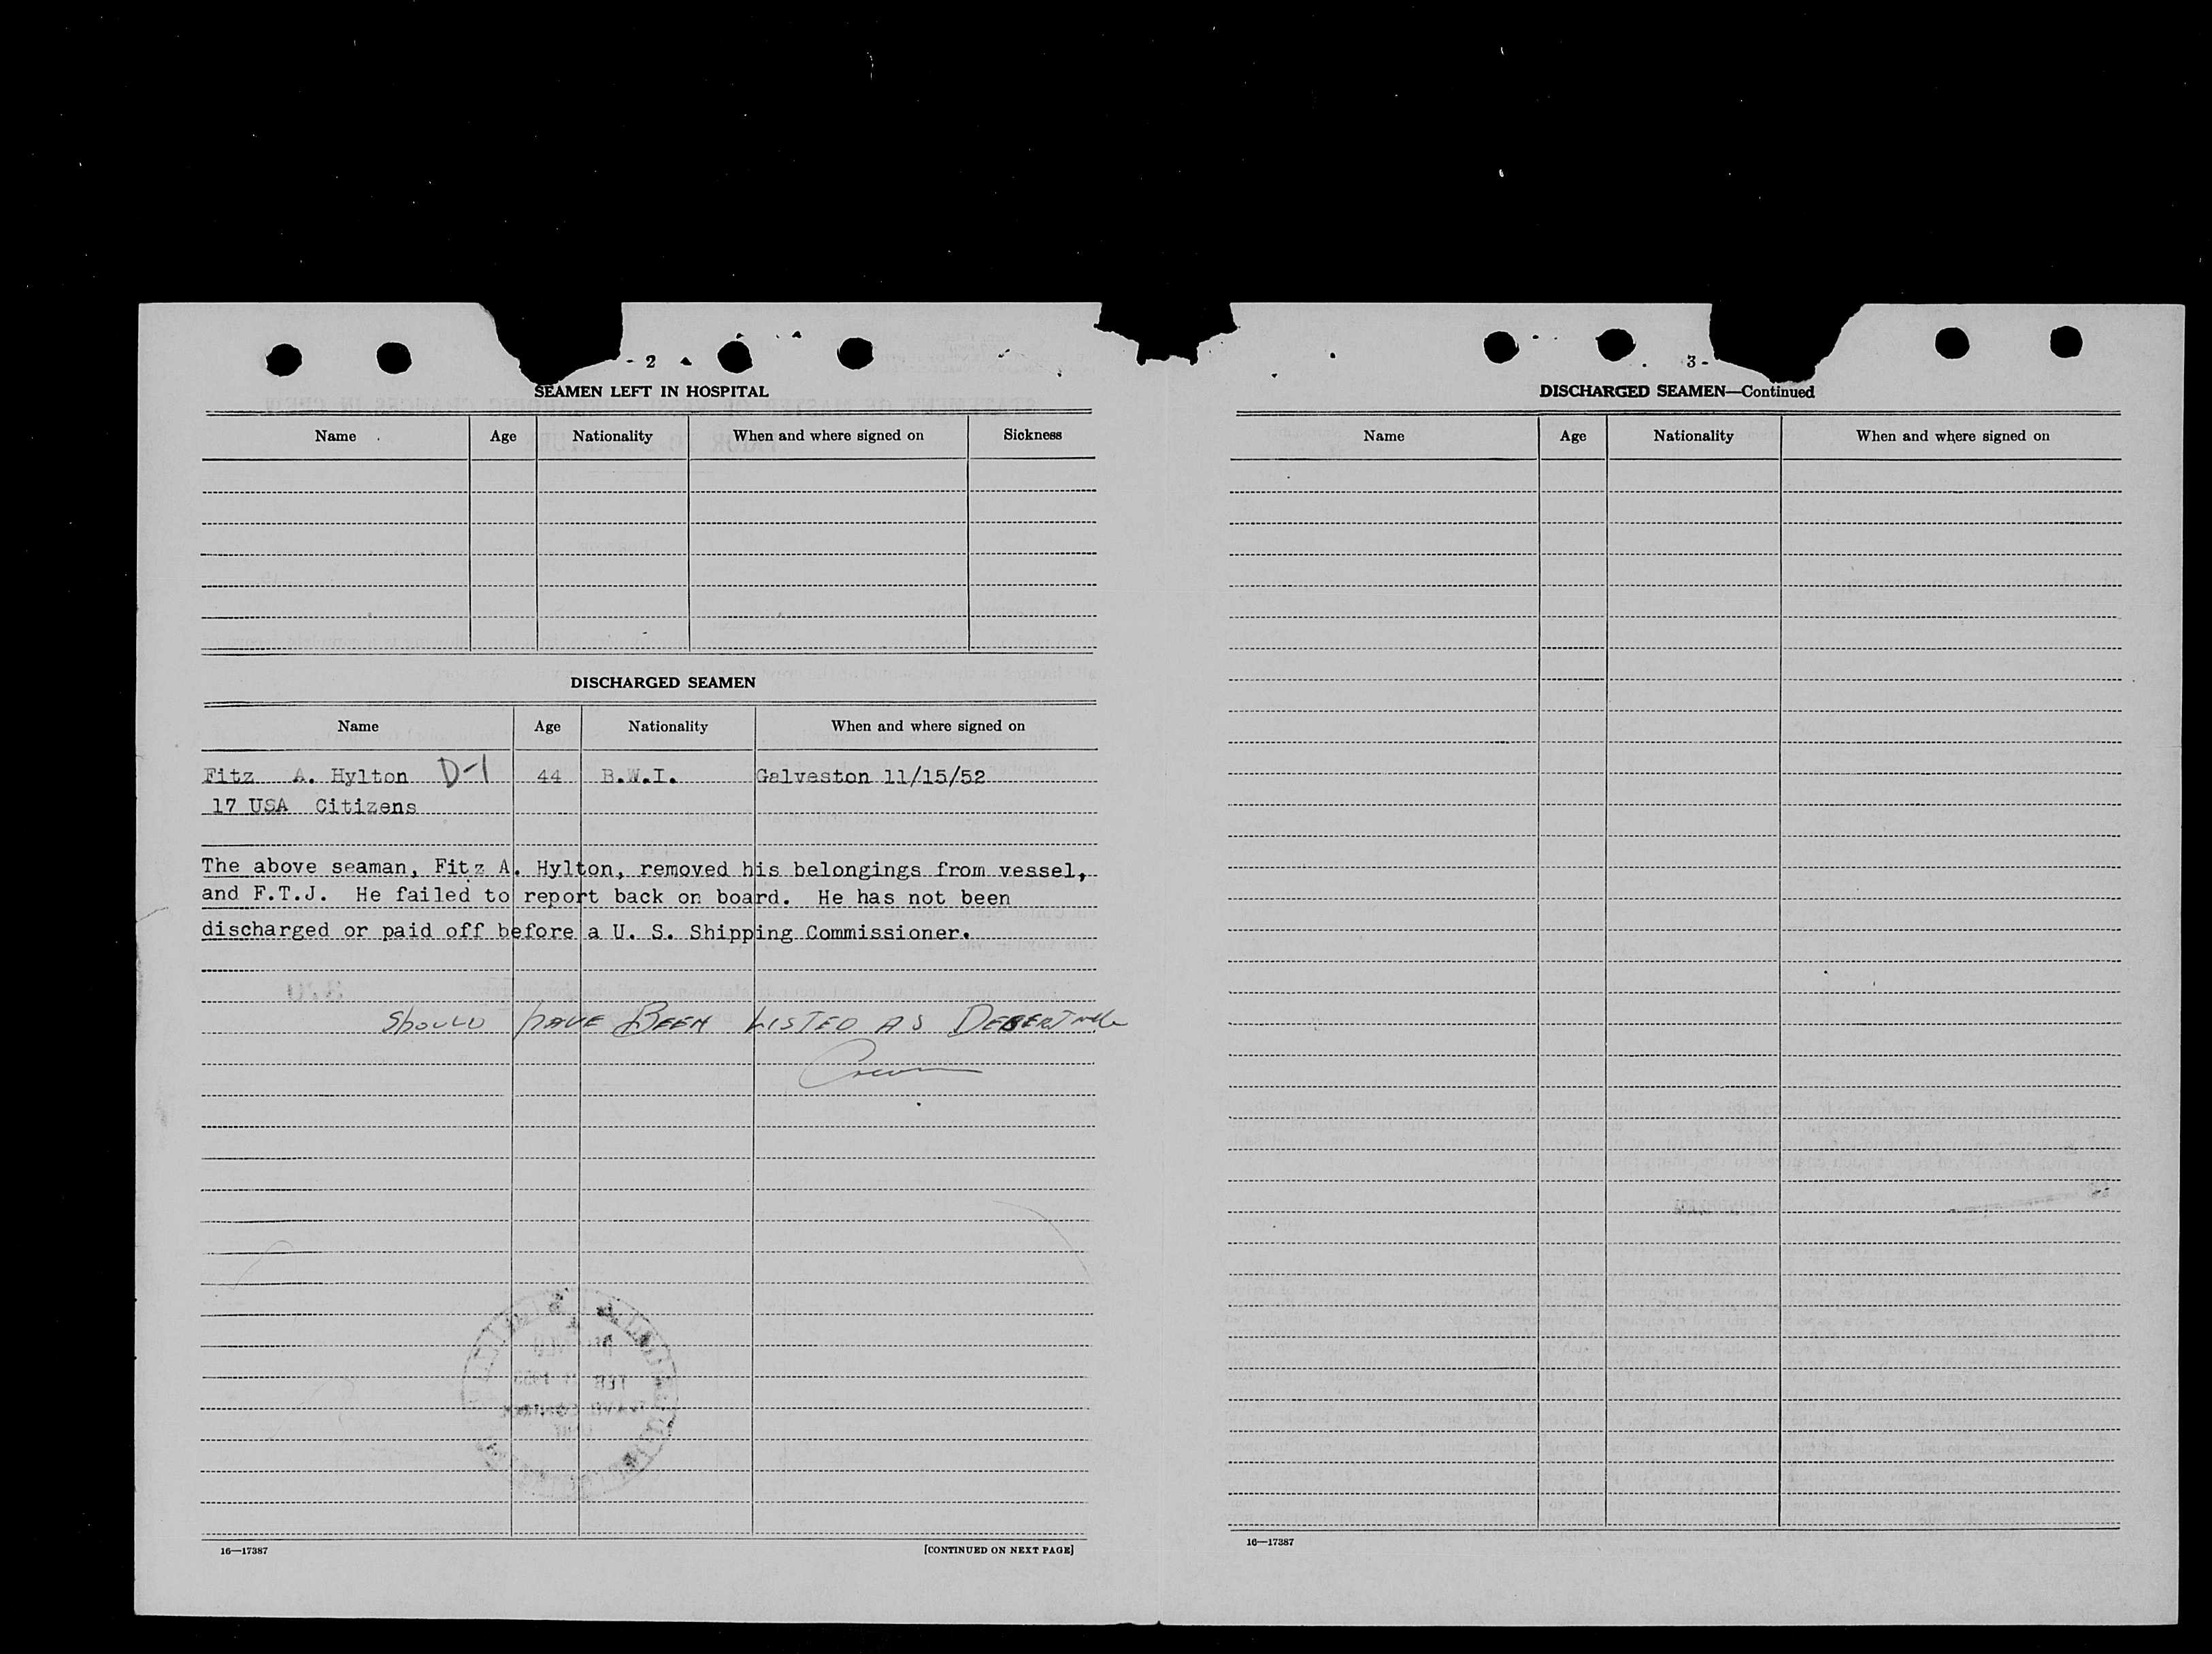 - 2
SEAMEN LEFT IN HOSPITAL
Name Age Nationality When and where signed on Sickness
DISCHARGED SEAMEN
Name Age Nationality When and where signed on
Fitz A. Hylton D-1 44 B.W.I. Galveston 11/15/52
17 USA Citizens
The above seaman, Fitz A. Hylton, removed his belongings from vessel,
and F.T.J. He failed to report back on board. He has not been
discharged or paid off before a U. S. Shipping Commissioner.
Should have BEEN LISTED AS
16—17387 [CONTINUED ON NEXT PAGE]
3 -
DISCHARGED SEAMEN—Continued
Name Age Nationality When and where signed on
16—17387